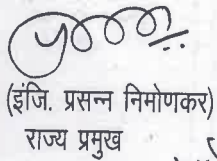 (इंजि. प्रसन्न निमोणकर)
राज्य प्रमुख